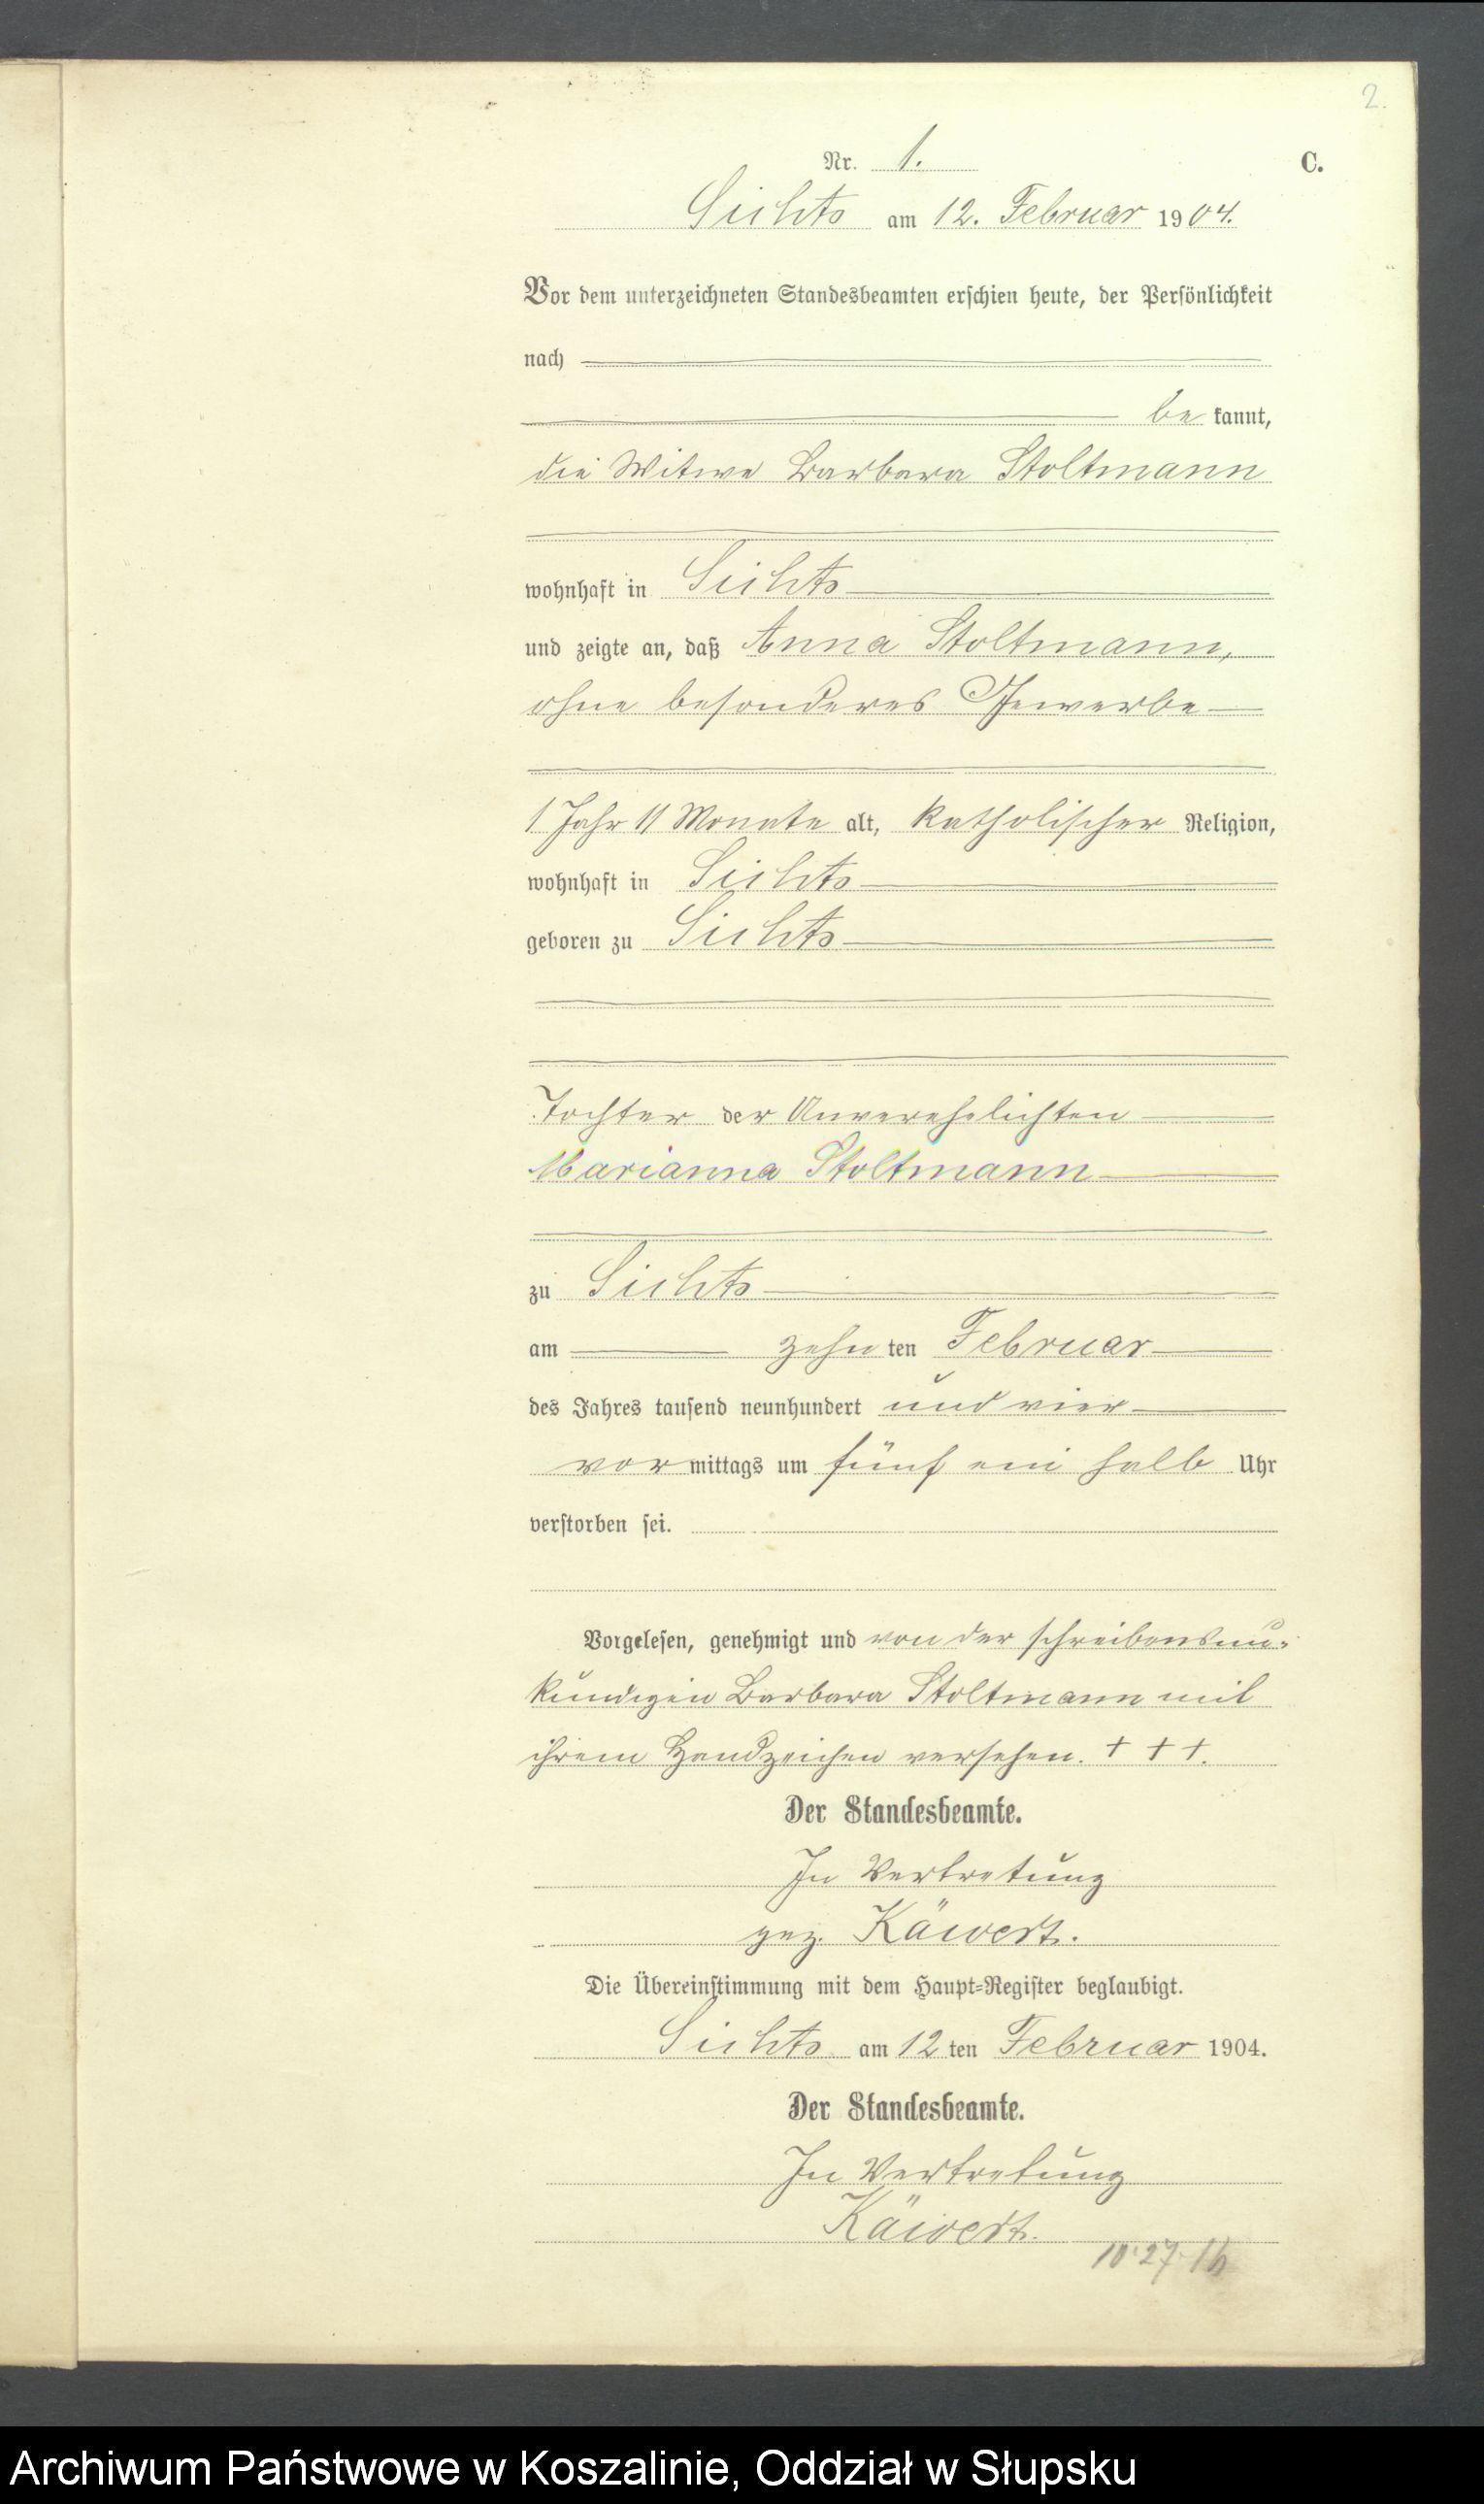 2.
Nr. 1.
C.
Sichts am 12. Februar 1904.
Vor dem unterzeichneten Standesbeamten erschien heute, der Persönlichkeit
nach
be kannt,
die Witwe Barbara Stoltmann
wohnhaft in Sichts
und zeigte an, daß Anna Stoltmann,
ohne besonderes Gewerbe
1 Jahr 11 Monate alt, katholischer Religion,
wohnhaft in Sichts
geboren zu Sichts
Tochter der Unverehelichten
Marianna Stoltmann
zu Sichts
am zehn ten Februar
des Jahres tausend neunhundert und vier
vor mittags um fünf ein halb Uhr
verstorben sei.
Vorgelesen, genehmigt und von der schreibensun-
kundigen Barbara Stoltmann mit
ihrem Handzeichen versehen. + + +.
Der Standesbeamte.
In Vertretung
gez. Käwert.
Die Übereinstimmung mit dem Haupt-Register beglaubigt.
Sichts am 12 ten Februar 1904.
Der Standesbeamte.
In Vertretung
Käwert.
Archiwum Państwowe w Koszalinie, Oddział w Słupsku